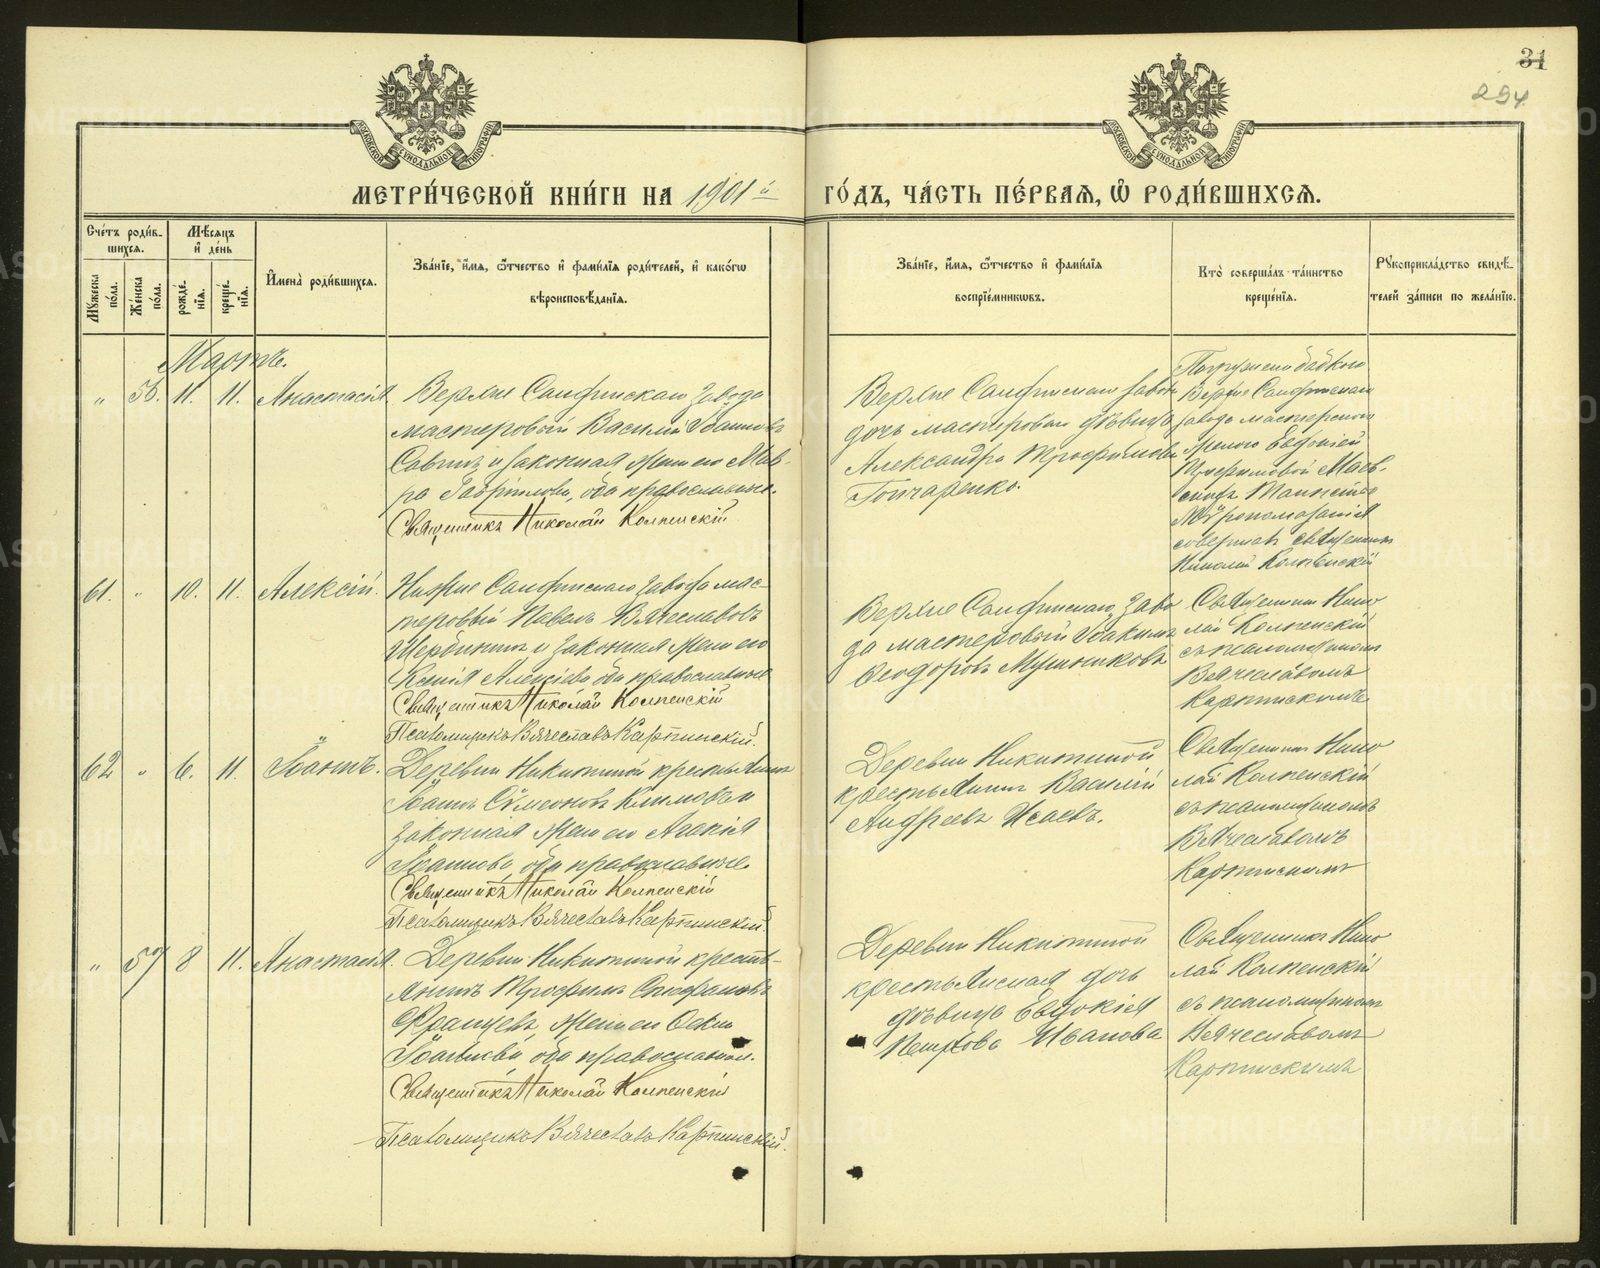 31
294
МОСКОВСКОЙ СѴНОДАЛЬНОЙ ТИПОГРАФІИ
МОСКОВСКОЙ СѴНОДАЛЬНОЙ ТИПОГРАФІИ
МЕТРИ́ЧЕСКОЙ КНИ́ГИ НА 1901й ГО́ДЪ, ЧА́СТЬ ПЕ́РВАЯ, Ѽ РОДИ́ВШИХСЯ.
Сче́тъ роди́в-
шихся.
Мѣ́сяцъ
и҆ де́нь
Мꙋ́жеска
по́ла.
Же́нска
по́ла.
рожде́-
нїя.
креще́-
нїя.
И҆мена̀ роди́вшихся.
Зва́нїе, и҆́мя, ѻ҆́тчество и҆ фами́лїя роди́телей, и҆ како́гѡ
вѣроисповѣ́данїя.
Зва́нїе, и҆́мя, ѻ҆́тчество и҆ фами́лїя
воспрїе́мникѡвъ.
Кто̀ соверша́лъ та́инство
креще́нїя.
Рꙋкоприкла́дство свидѣ́-
телей за́писи по жела́нїю.
Мартъ.
" 56. 11. 11. Анастасія
Верхне Санфтскаго завода
мастеровой Василій
Саввинъ и законная жена его Мав-
ра Гавріилова, оба православные.
Священникъ Николай Колпенскій
дочь мастероваго дѣвица
Александра Трофимова
Гончаренко.
Погружено бабкою
завода мастерскою
женою Евдокіей
Трофимовой
Таинство
Мѵропомазанія
совершалъ священникъ
Николай Колпенскій
61. " 10. 11. Алексій.
завода мас-
теровый Павелъ Вячеславовъ
Щербининъ и законная жена его
Ксенія Алексіева оба православные
Священникъ Николай Колпенскій
Псаломщикъ Вячеславъ Карпинскій.
да мастеровый Іоакимъ
Ѳеодоровъ Мушниковъ
Священникъ Нико
лай Колпенскій
съ псаломщикомъ
Вячеславомъ
Карпинскимъ
62 " 6. 11. Іоаннъ.
Деревни Никитиной крестьянинъ
Іоаннъ Сѵмеоновъ Климовъ и
законная жена его Агапія
Іоаннова оба православные.
Священникъ Николай Колпенскій
Псаломщикъ Вячеславъ Карпинскій.
Деревни Никитиной
крестьянинъ Василій
Андреевъ Исаевъ.
Священникъ Нико
лай Колпенскій
съ псаломщикомъ
Вячеславомъ
Карпинскимъ
" 57 8 11. Анастасія.
Деревни Никитиной кресть-
янинъ Трофимъ Стефановъ
жена его
оба православные.
Священникъ Николай Колпенскій
Псаломщикъ Вячеславъ Карпинскій.
Деревни Никитиной
крестьянская дочь
дѣвица Евдокія
Петрова Иванова
Священникъ Нико
лай Колпенскій
съ псаломщикомъ
Вячеславомъ
Карпинскимъ
METRIKI.GASO-URAL.RU